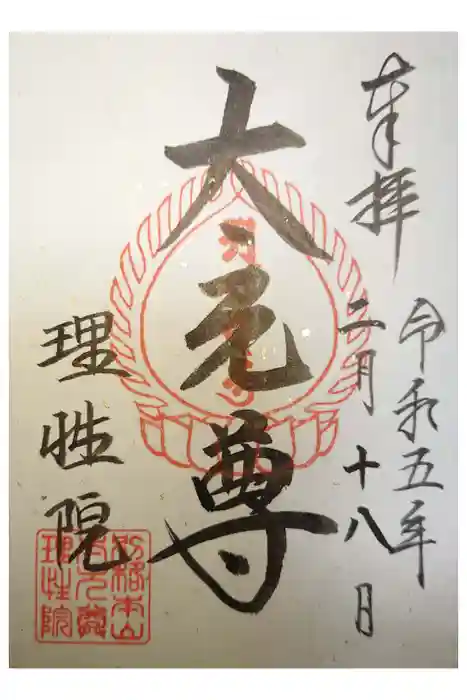 奉拝
令和五年
二月十八日
大元尊
理性院
別格本山
理性院